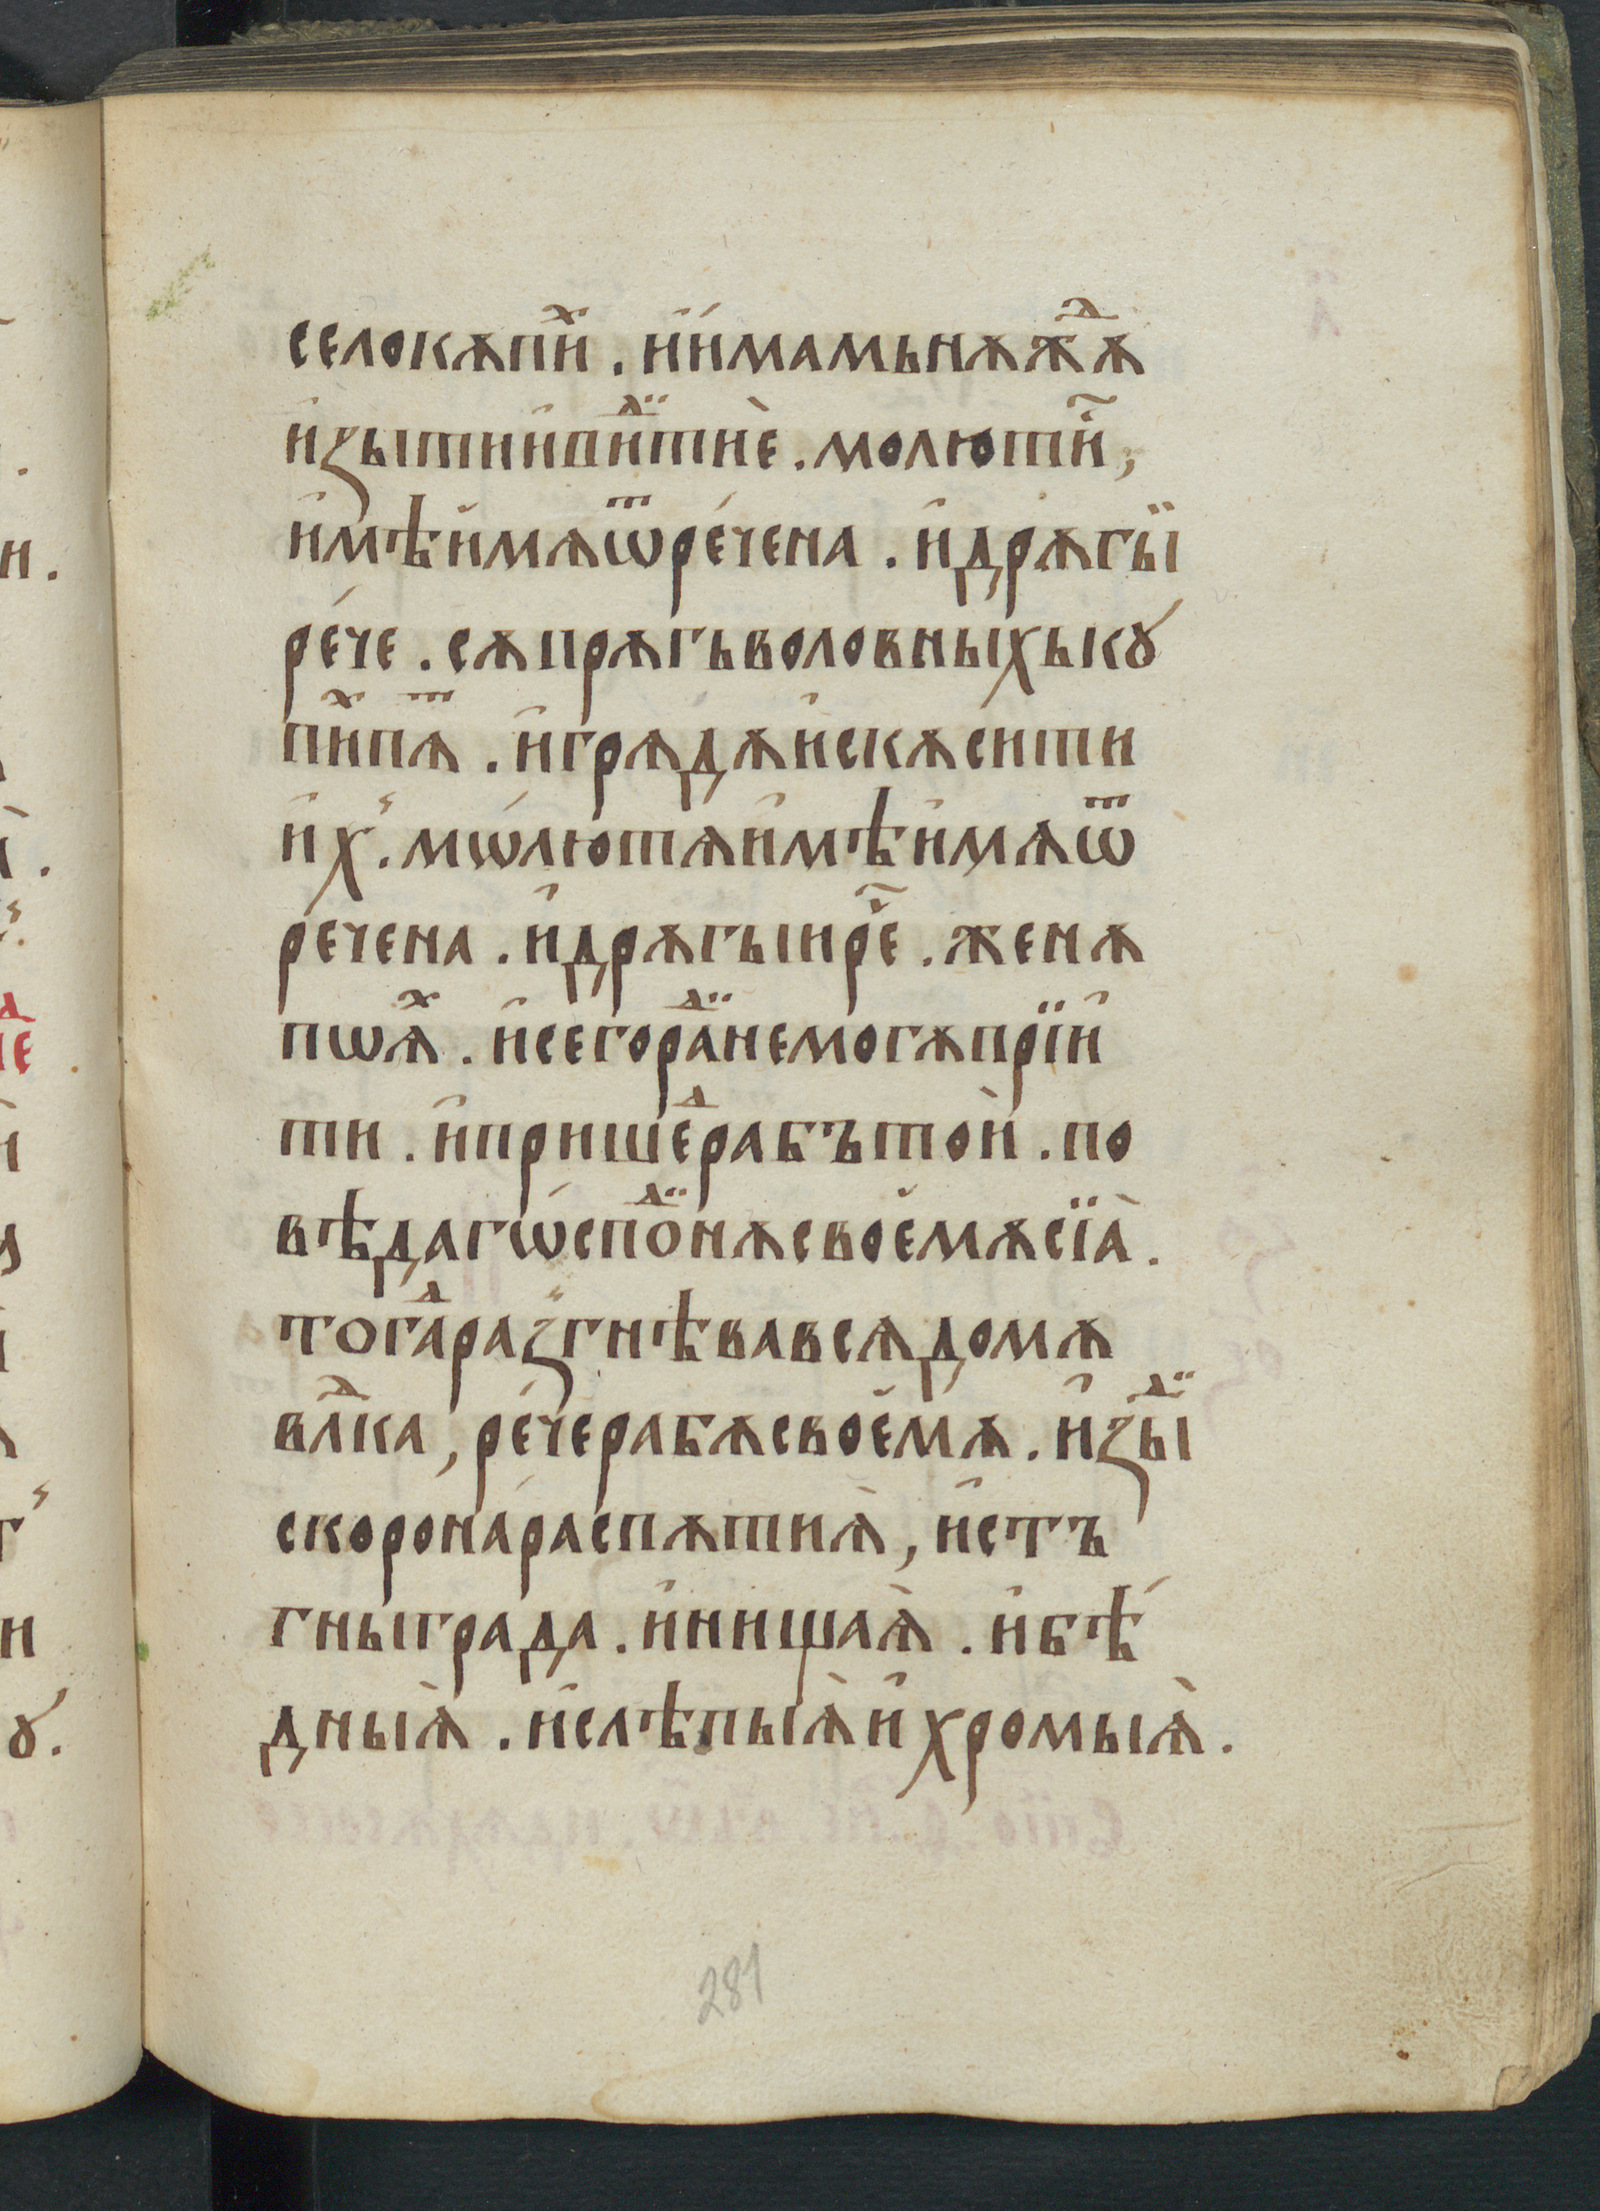 селокѫпиⷯ҇ . и҆и҆мамьнѫжⷣѫ
и҆ꙁытиивиⷣ҇тиѐ . молютиⷭ҇,
и҆мѣи҆мѧѿре́чена . и҆дрѫгыи
ре́че . сѫпрѫгъволовныхькꙋ́
пиⷯпѧⷮ . и҆грѧдѫи҆скѫсити
и҆х̾ . мѡ́лютѧи҆мѣи҆мѧѿ
речена . и҆дрѫгыиреⷱ҇ . женѫ
поѧⷯ . и҆сегораⷣинемогѫпрїи҆
ти . и҆пришеⷣрабътои҆ . по
вѣдагѡ́споⷣинѫсвое҆мѫсїа̀ .
тогаⷣраꙁ̾гнѣвавсѧдомѫ
влⷣка , ре́черабѫсвое҆мѫ . и҆ꙁыⷣи
скорона́распѫтиѧ̀ , и҆стъ
гныграда . и҆нищаѧ̀ . и҆бѣ́
дныѧ̀ . и҆слѣпыѧ̀и҆хромыѧ̀ .
281